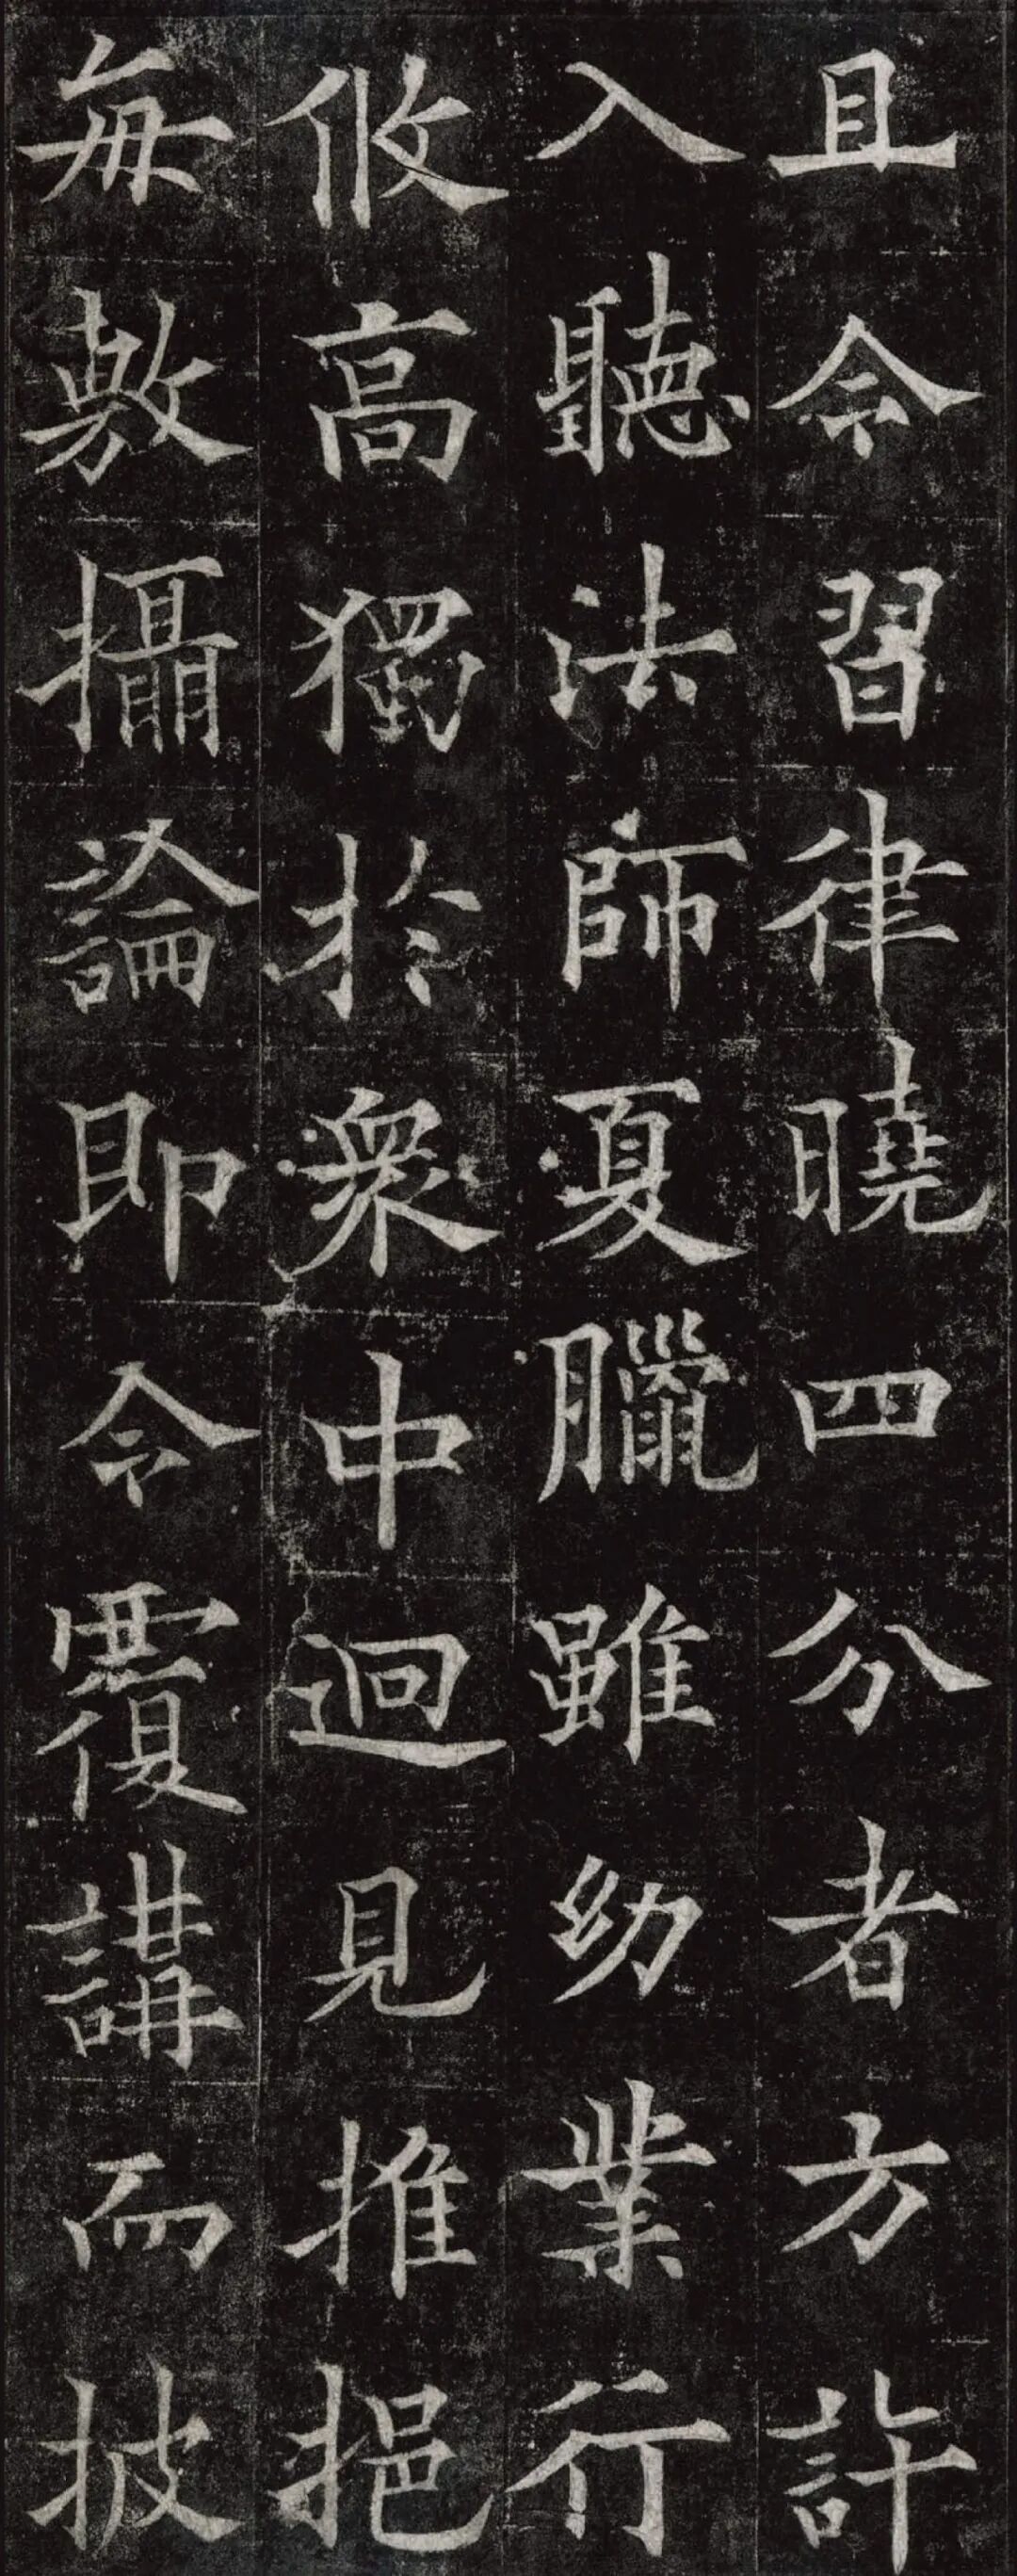 且令習律曉四分者方許
入聽法師夏臘雖幼業行
攸高獨於衆中迥見推挹
每敷攝論即令覆講而披